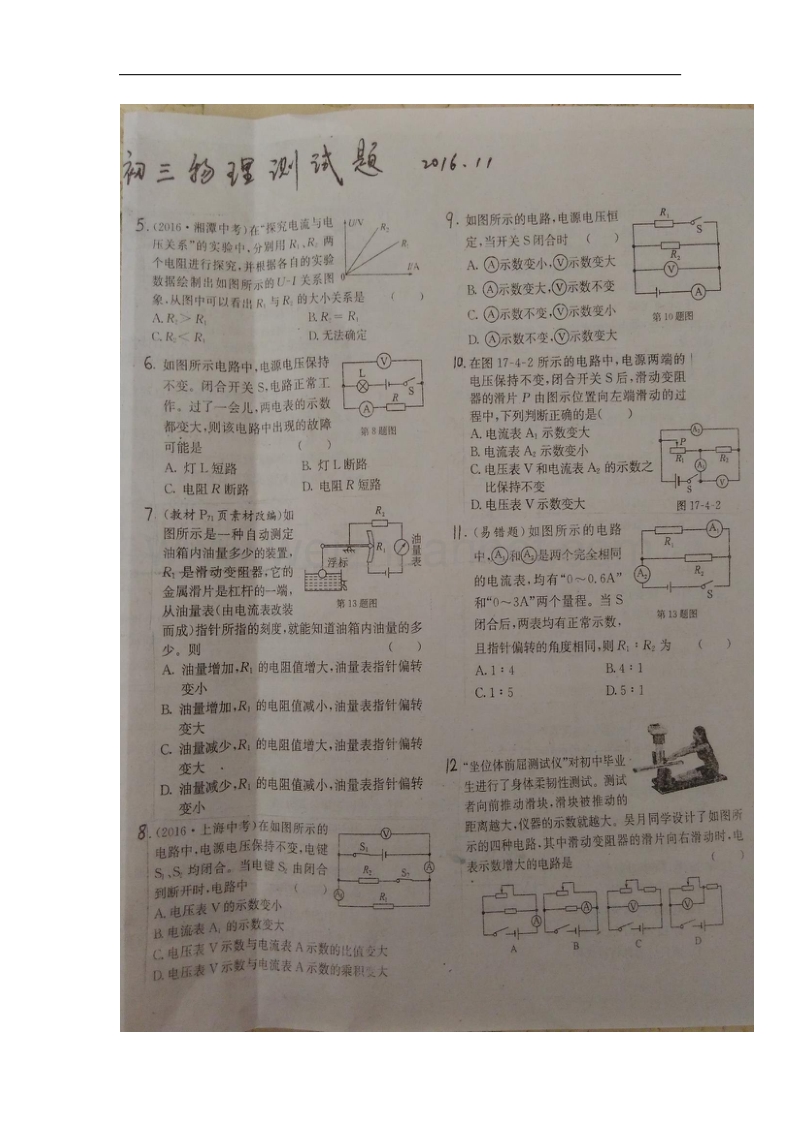 初三物理测试题 2016.11
5.(2016·湘潭中考)在“探究电流与电
压关系”的实验中,分别用R₁、R₂两
个电阻进行探究,并根据各自的实验
数据绘制出如图所示的U-I关系图
象,从图中可以看出R₁与R₂的大小关系是 ( )
U/V
R₂
R₁
I/A
0
A.R₁>R₂
B.R₁=R₂
C.R₁<R₂
D.无法确定
6.如图所示电路中,电源电压保持
不变。闭合开关S,电路正常工
作。过了一会儿,两电表的示数
都变大,则该电路中出现的故障
可能是 ( )
V
L
S
A
R
第8题图
A. 灯L短路
B. 灯L断路
C. 电阻R断路
D. 电阻R短路
7.(教材P₇₁页素材改编)如
图所示是一种自动测定
油箱内油量多少的装置,
R₁是滑动变阻器,它的
金属滑片是杠杆的一端,
从油量表(由电流表改装
而成)指针所指的刻度,就能知道油箱内油量的多
少。则 ( )
R₂
R₁
油量表
浮标
第13题图
A. 油量增加,R₁的电阻值增大,油量表指针偏转
变小
B. 油量增加,R₁的电阻值减小,油量表指针偏转
变大
C. 油量减少,R₁的电阻值增大,油量表指针偏转
变大
D. 油量减少,R₁的电阻值减小,油量表指针偏转
变小
8.(2016·上海中考)在如图所示的
电路中,电源电压保持不变,电键
S₁、S₂均闭合。当电键S₂由闭合
到断开时,电路中 ( )
V
S₁
R₂
S₂
A
A₁
R₁
A.电压表V的示数变小
B.电流表A₁的示数变大
C.电压表V示数与电流表A示数的比值变大
D.电压表V示数与电流表A示数的乘积变大
9.如图所示的电路,电源电压恒
定,当开关S闭合时 ( )
A. Ⓐ示数变小,Ⓥ示数变大
B. Ⓐ示数变大,Ⓥ示数不变
C. Ⓐ示数不变,Ⓥ示数变小
D. Ⓐ示数不变,Ⓥ示数变大
R₁
S
R₂
V
A
第10题图
10.在图17-4-2所示的电路中,电源两端的
电压保持不变,闭合开关S后,滑动变阻
器的滑片P由图示位置向左端滑动的过
程中,下列判断正确的是( )
A.电流表A₁示数变大
B.电流表A₂示数变小
C.电压表V和电流表A₂的示数之
比保持不变
D.电压表V示数变大
A₂
P
R₁
R₂
A₁
S
V
图17-4-2
11.(易错题)如图所示的电路
中,Ⓐ₁和Ⓐ₂是两个完全相同
的电流表,均有“0~0.6A”
和“0~3A”两个量程。当S
闭合后,两表均有正常示数,
且指针偏转的角度相同,则R₁∶R₂为 ( )
A₁
R₁
A₂
R₂
S
第13题图
A.1∶4
B.4∶1
C.1∶5
D.5∶1
12.“坐位体前屈测试仪”对初中毕业
生进行了身体柔韧性测试。测试
者向前推动滑块,滑块被推动的
距离越大,仪器的示数就越大。吴月同学设计了如图所
示的四种电路,其中滑动变阻器的滑片向右滑动时,电
表示数增大的电路是 ( )
A
A
V
V
A
B
C
D